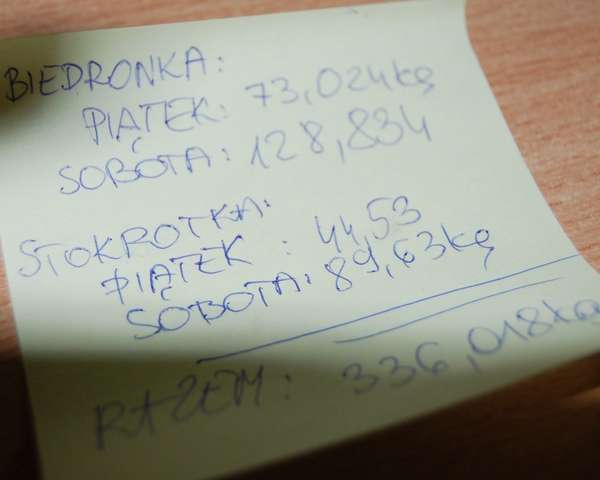 BIEDRONKA:
PIĄTEK: 73,024kg
SOBOTA: 128,834
STOKROTKA:
PIĄTEK : 44,53
SOBOTA: 89,63kg
RAZEM: 336,018kg